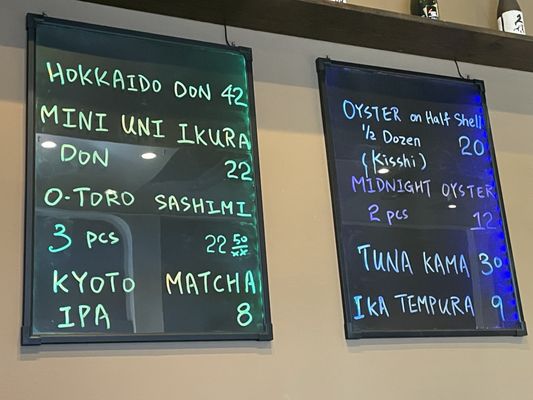 HOKKAIDO DON 42
MINI UNI IKURA
DON 22
O-TORO SASHIMI
3 PCS 22 50/xx
KYOTO MATCHA
IPA 8
OYSTER on Half Shell
1/2 Dozen 20
(Kisshi)
MIDNIGHT OYSTER
2 pcs 12
TUNA KAMA 30
IKA TEMPURA 9